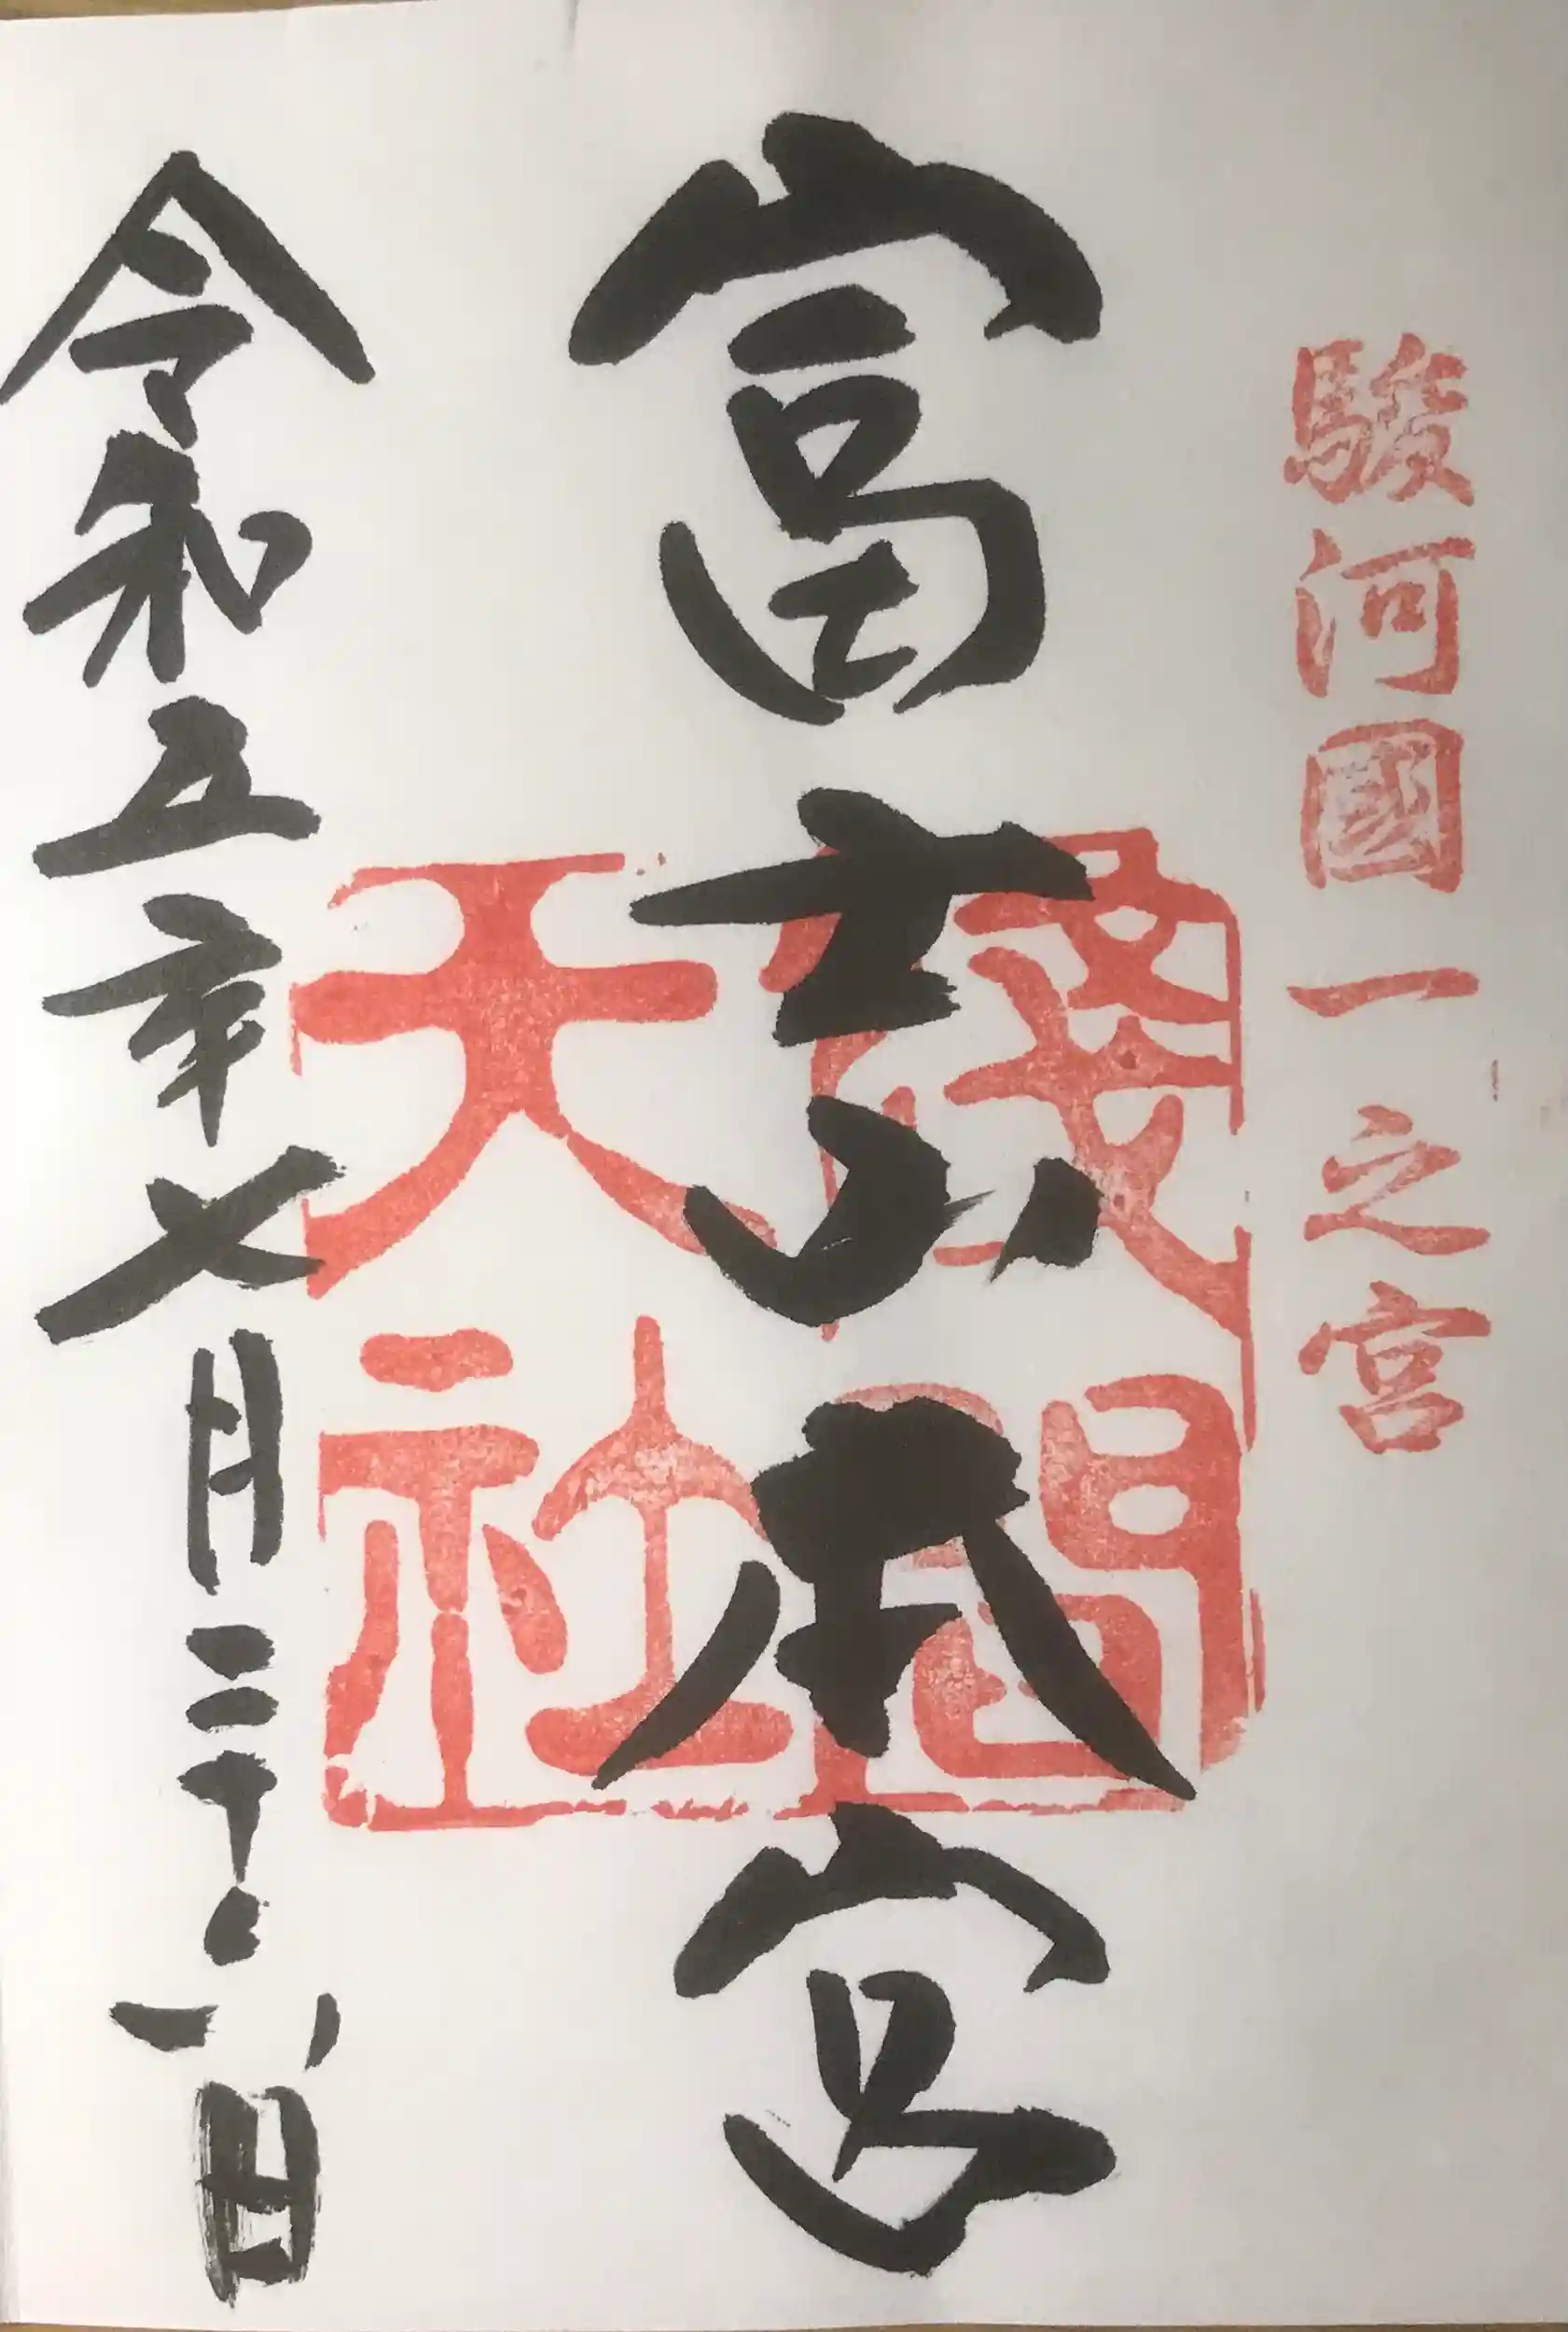 駿河國一之宮
富士山本宮
淺間
大社
令和五年七月二十日